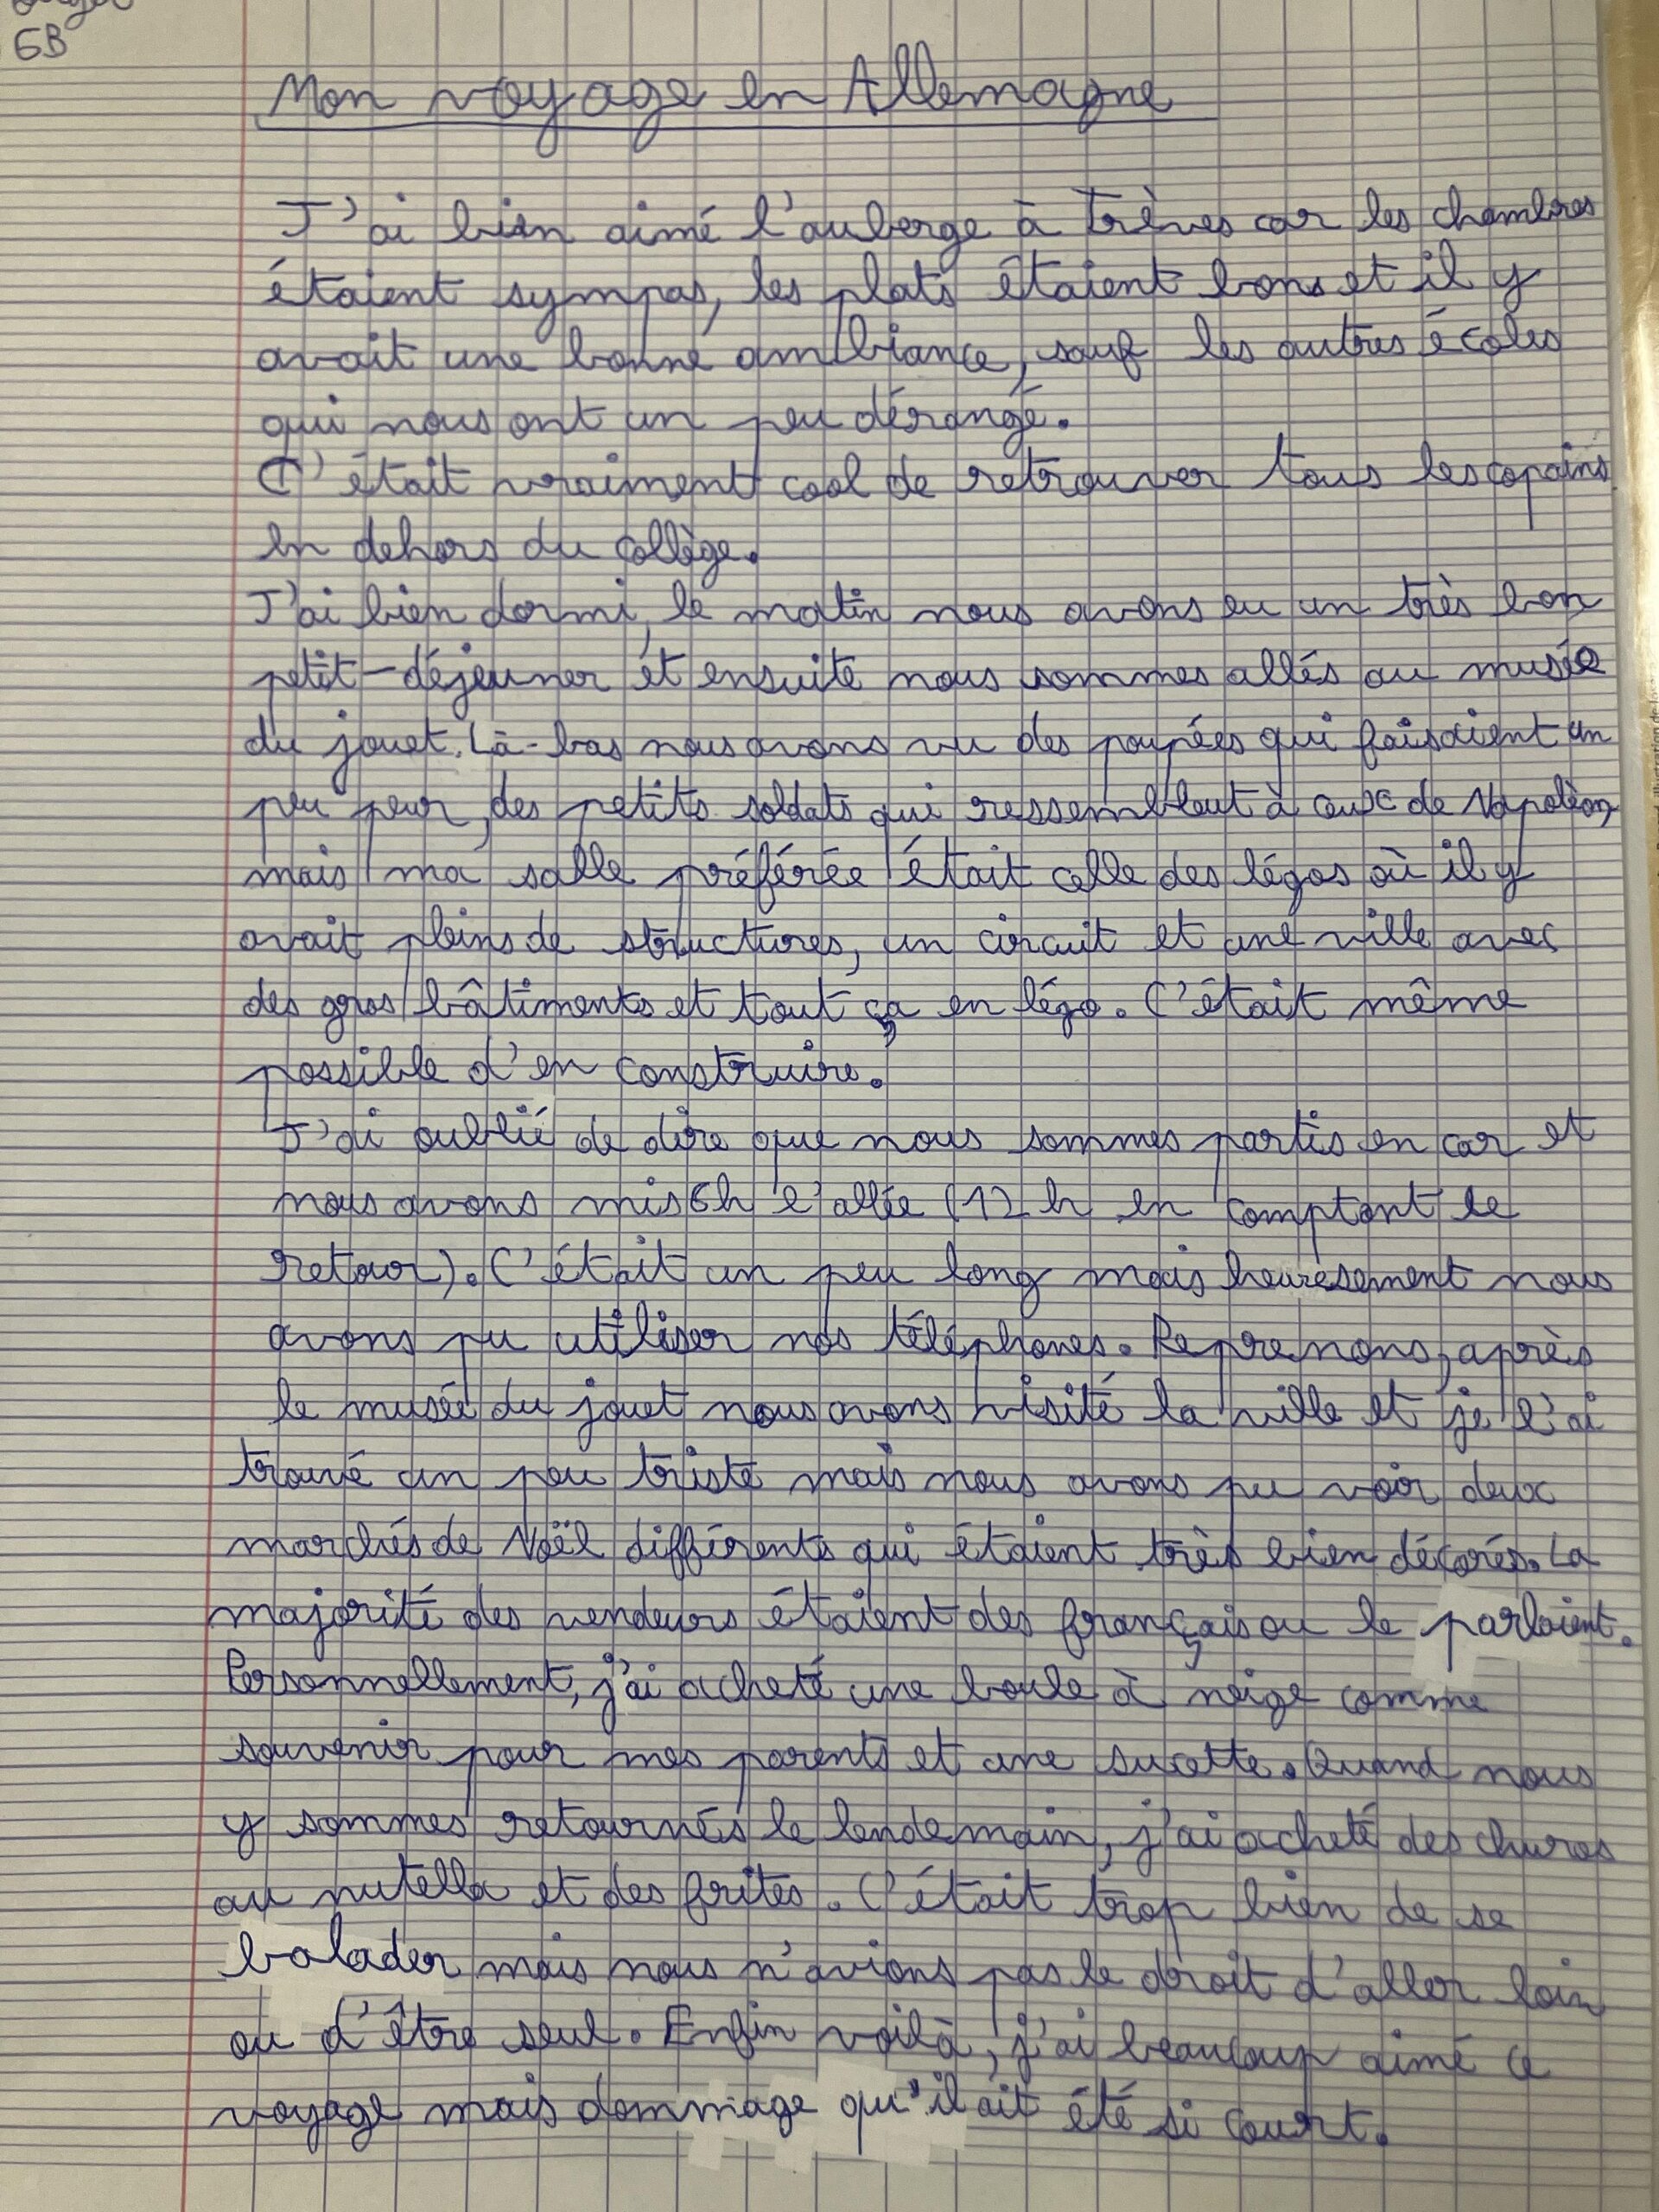 6B
Mon voyage en Allemagne
J'ai bien aimé l'auberge à Trèves car les chambres
étaient sympas, les plats étaient bons et il y
avait une bonne ambiance, sauf les autres écoles
qui nous ont un peu dérangé.
C'était vraiment cool de retrouver tous les copains
en dehors du collège.
J'ai bien dormi, le matin nous avons eu un très bon
petit-déjeuner et ensuite nous sommes allés au musée
du jouet. Là-bas nous avons vu des poupées qui faisaient un
peu peur, des petits soldats qui ressemblent à ceux de Napoléon,
mais ma salle préférée était celle des légos où il y
avait pleins de structures, un circuit et une ville avec
des gros bâtiments et tout ça en légo. C'était même
possible d'en construire.
J'ai oublié de dire que nous sommes partis en car et
nous avons mis 6h l'allée (12 h en comptant le
retour). C'était un peu long mais heuresement nous
avons pu utiliser nos téléphones. Reprenons, après
le musée du jouet nous avons visité la ville et je l'ai
trouvé un peu triste mais nous avons pu voir deux
marchés de Noël différents qui étaient très bien décorés. La
majorité des vendeurs étaient des français ou le parlaient.
Personnellement, j'ai acheté une boule à neige comme
souvenir pour mes parents et une sucette. Quand nous
y sommes retournés le lendemain, j'ai acheté des churos
au nutella et des frites. C'était trop bien de se
balader mais nous n'avions pas le droit d'aller loin
ou d'être seul. Enfin voilà, j'ai beaucoup aimé ce
voyage mais dommage qu'il ait été si court.